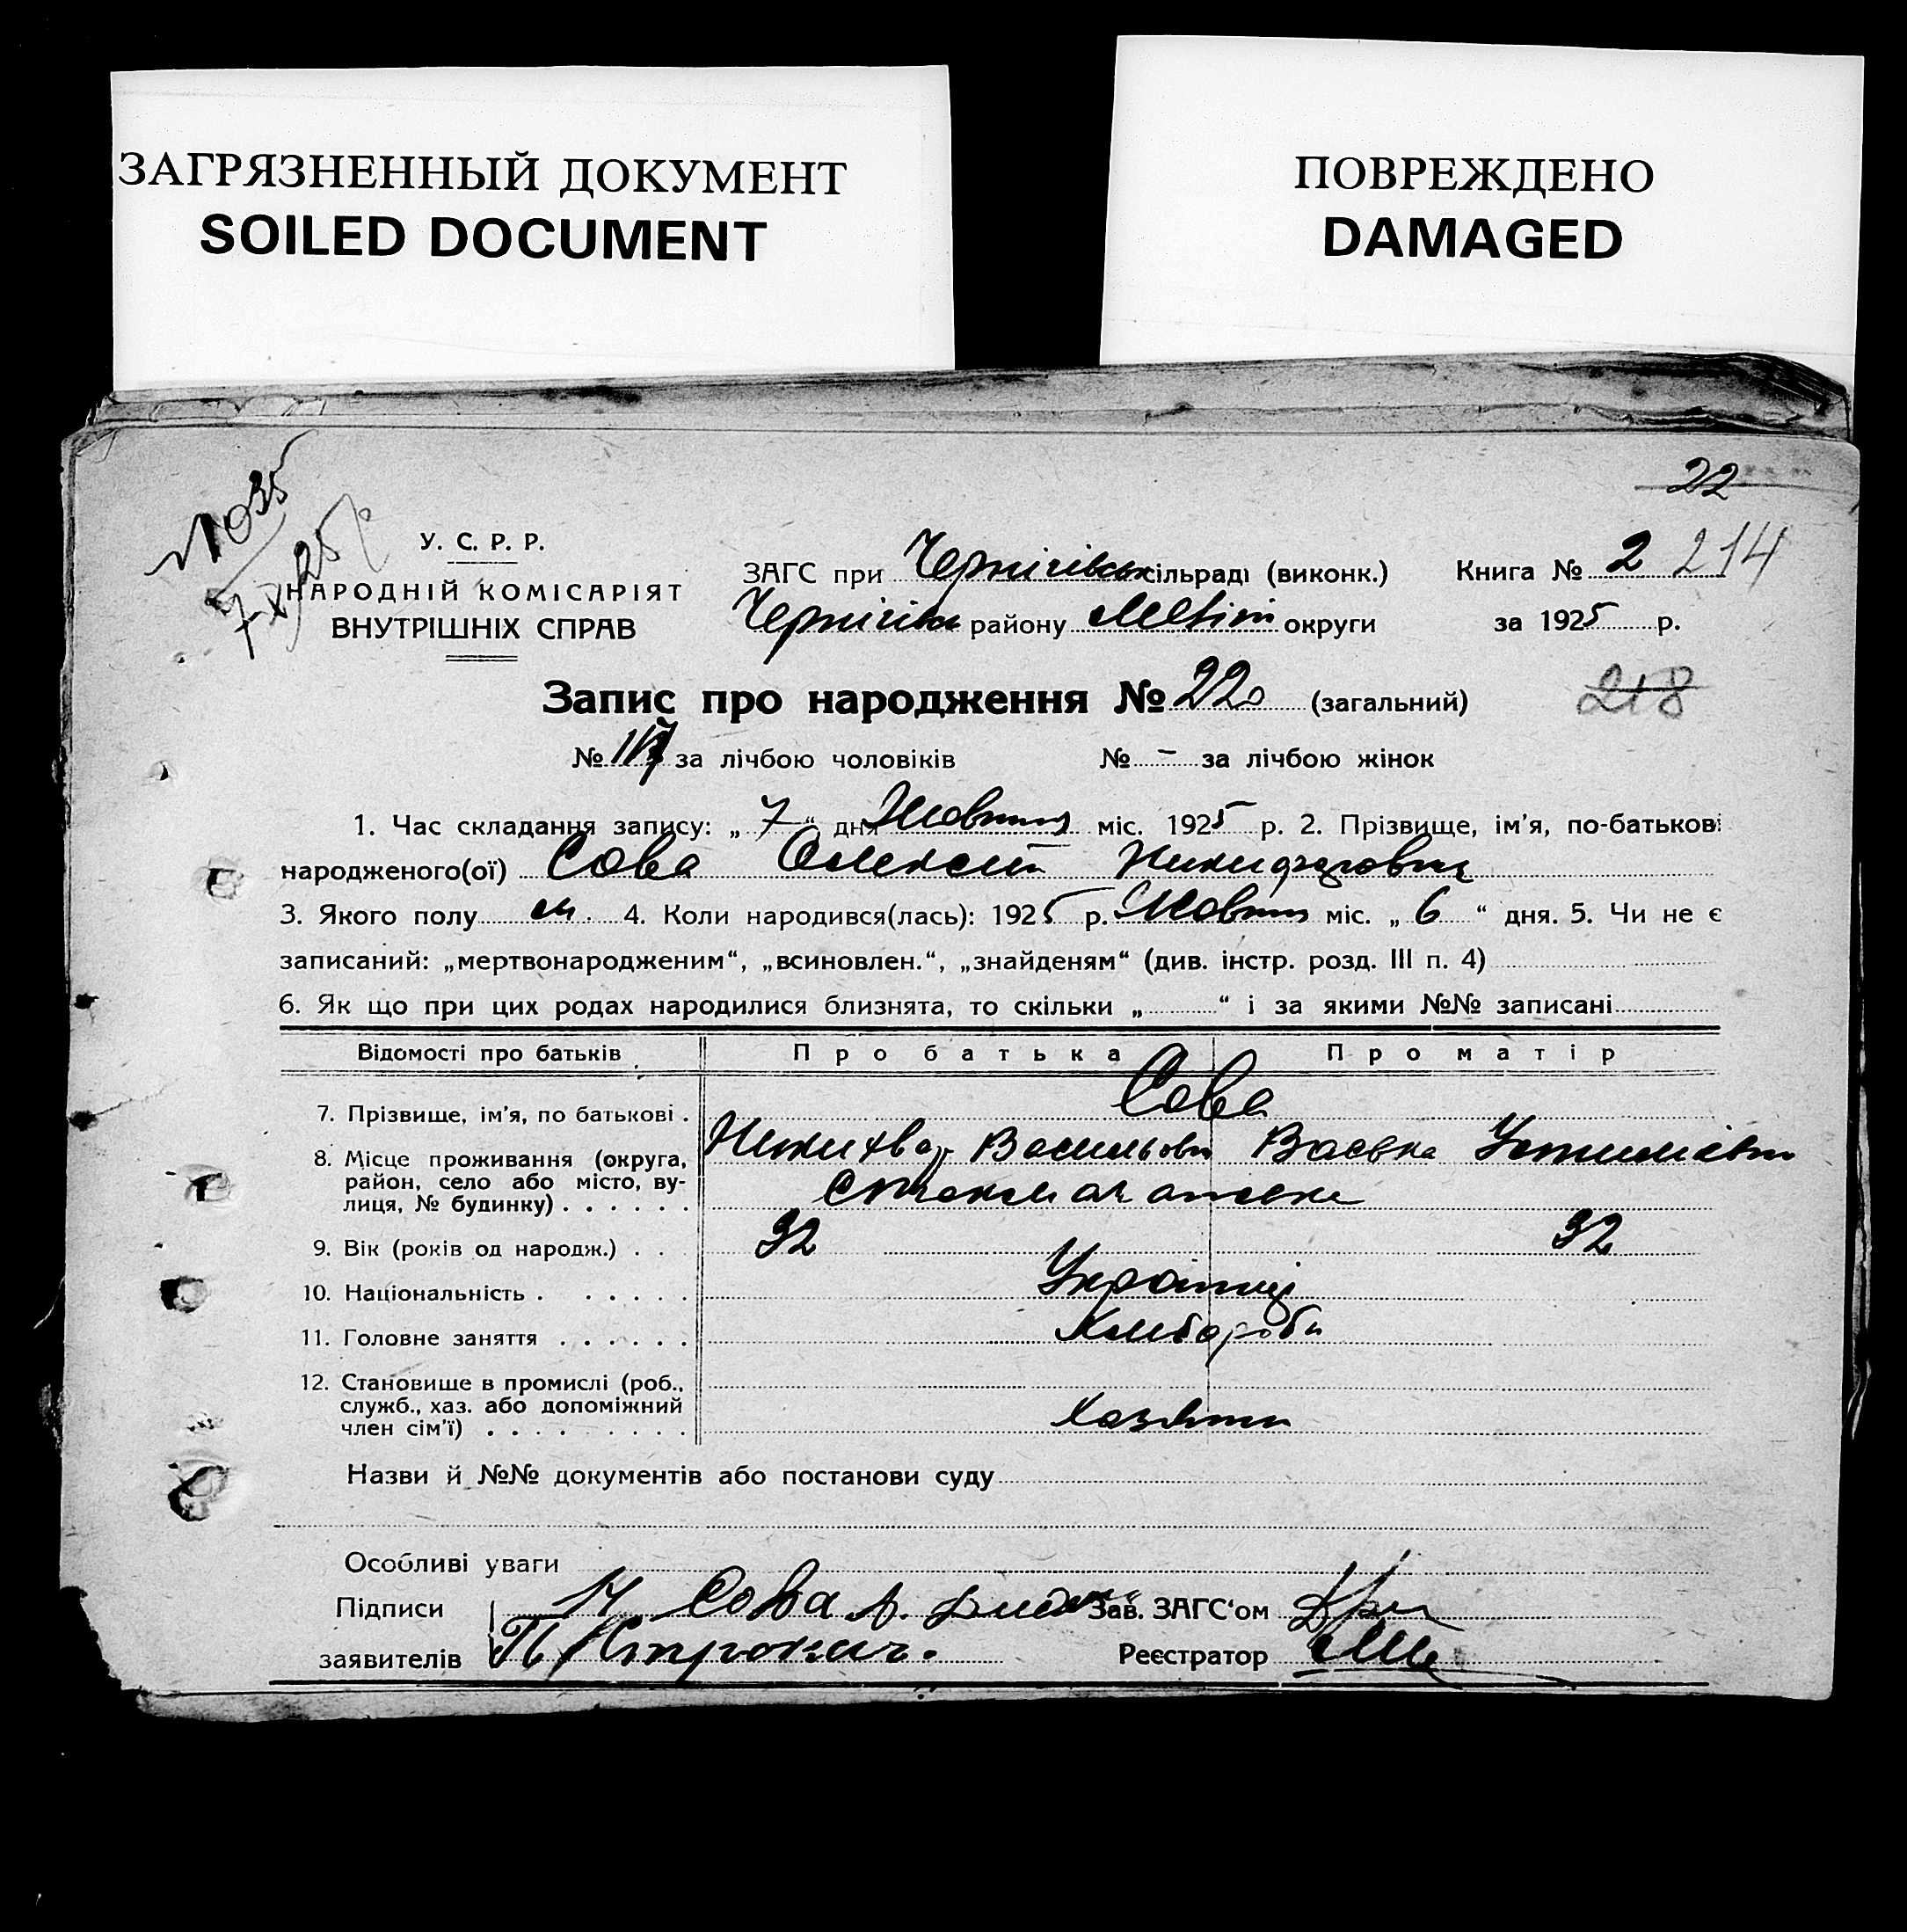 ЗАГРЯЗНЕННЫЙ ДОКУМЕНТ
SOILED DOCUMENT
ПОВРЕЖДЕНО
DAMAGED
22
У. С. Р. Р.
НАРОДНІЙ КОМІСАРІЯТ
ВНУТРІШНІХ СПРАВ
ЗАГС при Чернігівськ сільраді (виконк.) Книга № 2 214
Чернігівськ району округи за 1925 р.
Запис про народження № 220 (загальний) 218
№ 117 за лічбою чоловіків № – за лічбою жінок
1. Час складання запису: „ 7 “ дня Жовтня міс. 1925 р. 2. Прізвище, ім'я, по-батькові
народженого(ої) Сова Олексій Никифорович
3. Якого полу м. 4. Коли народився(лась): 1925 р. Жовтня міс. „ 6 “ дня. 5. Чи не є
записаний: „мертвонародженим“, „всиновлен.“, „знайденям“ (див. інстр. розд. III п. 4)
6. Як що при цих родах народилися близнята, то скільки „ “ і за якими №№ записані
Відомості про батьків Про батька Про матір
7. Прізвище, ім'я, по батькові . Сова
8. Місце проживання (округа, район, село або місто, вулиця, № будинку) . . . . . . Васильов
9. Вік (років од народж.) . . 32 32
10. Національність . . . . . . Українці
11. Головне заняття . . . . . . Хлібороби
12. Становище в промислі (роб., служб., хаз. або допоміжний член сім'ї) . . . . . . . . . Хазяини
Назви й №№ документів або постанови суду
Особливі уваги
Підписи Н Сова Зав. ЗАГС'ом
заявителів Реєстратор